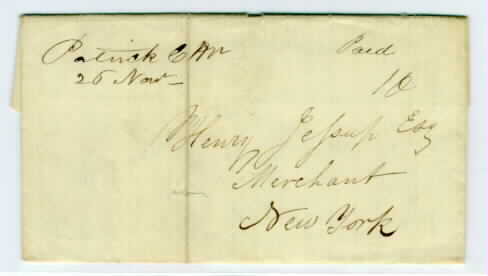 Patrick C
26 Nov
Paid
10
Henry Jeſsup Esq
Merchant
New York